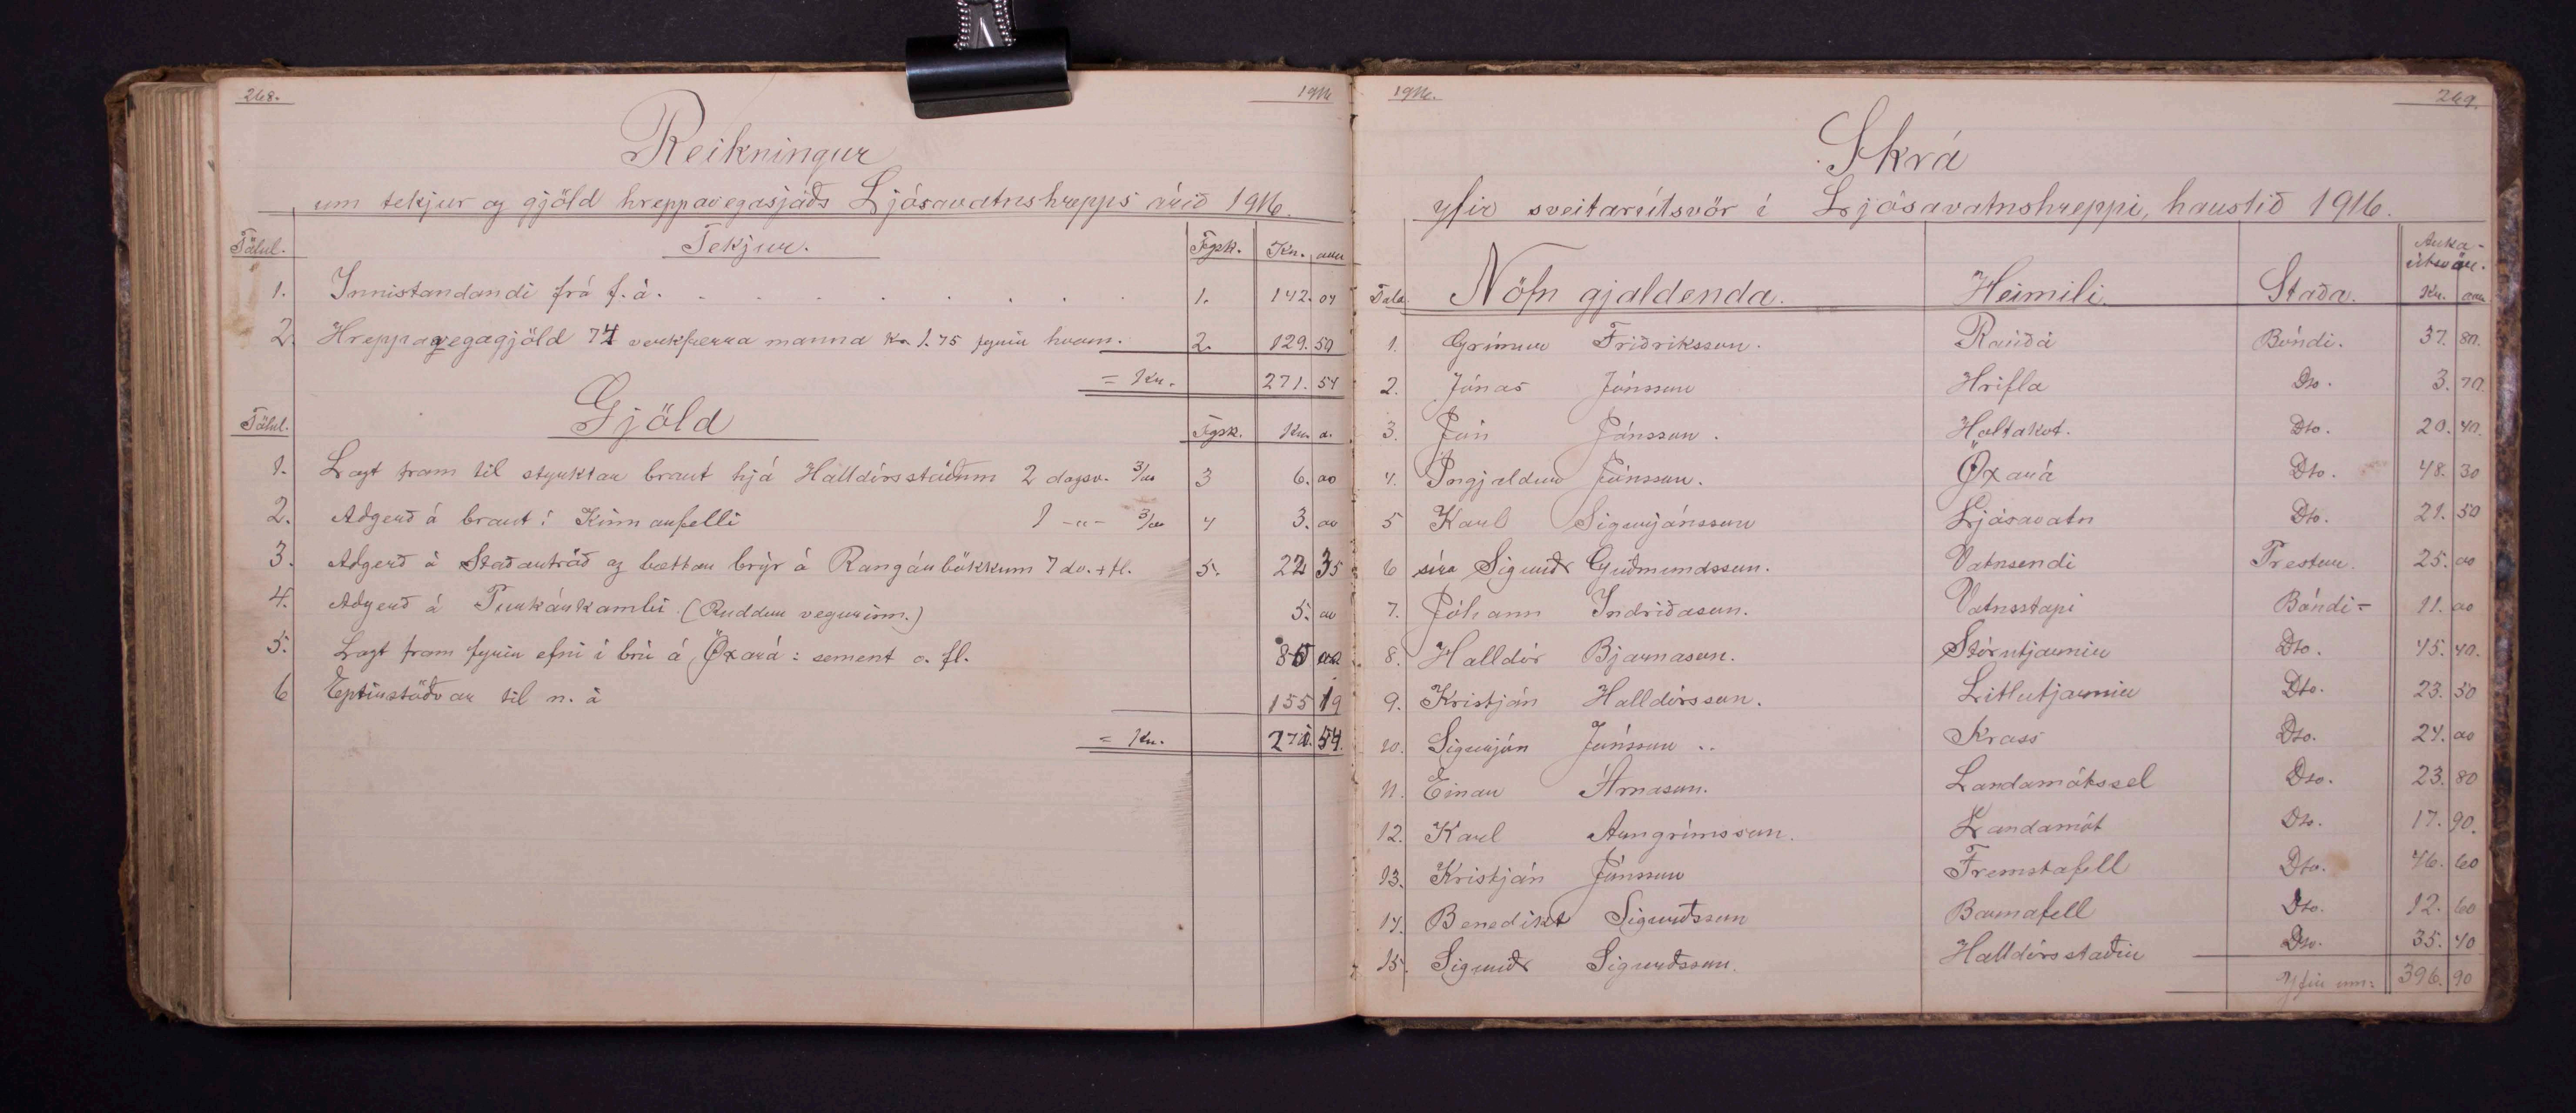 268.
1916
Reikningur
um tekjur og gjöld hreppavegasjóðs Ljósavatnshrepps árið 1916.
Tölul. Tekjur. Fgsk. Kr. aur
1. Innistandandi frá f. á. . . . . . . . . 1. 142. 04
2. Hreppavegagjöld 74 verkfærra manna kr 1.75 fyrir hvern. 2. 129. 50
= Kr. 271. 54
Tölul. Gjöld Fgsk. Kr. a.
1. Lagt fram til styrktar braut hjá Halldórsstöðum 2 dagsv. 3/00 3 6. 00
2. Aðgerð á braut í Kinnarfelli 1 -"- 3/00 4 3. 00
3. Aðgerð á Staðartröð og bættar brýr á Rangárbökkum 7 dv. + fl. 5. 22 35
4. Aðgerð á Purkárkambi (Ruddur vegurinn.) 5. 00
5. Lagt fram fyrir efni í brú á Öxará: sement o. fl. 80 00
6 Eptirstöðvar til n. á 155 19
= Kr. 271. 54.
1916.
269.
Skrá
yfir sveitarútsvör í Ljósavatnshreppi, haustið 1916.
Tala Nöfn gjaldenda. Heimili. Staða. Auka-útsvör. Kr. aur
1. Grímur Friðriksson. Rauðá Bóndi. 37. 80.
2. Jónas Jónsson Hrifla Do. 3. 70.
3. Jón Jónsson. Holtakot. Do. 20. 40.
4. Ingjaldur Jónsson. Öxará Do. 48. 30
5 Karl Sigurjónsson Ljósavatn Do. 21. 50
6 síra Sigurðr Guðmundsson. Vatnsendi Prestur. 25. 00
7. Jóhann Indriðason. Vatnsstapi Bóndi- 11. 00
8. Halldór Bjarnason. Stórutjarnir Do. 45. 40.
9. Kristján Halldórsson. Litlutjarnir Do. 23. 50
10. Sigurjón Jónsson .. Krass Do. 24. 00
11. Einar Árnason. Landamótssel Do. 23. 80
12. Karl Arngrímsson. Landamót Do. 17. 90.
13. Kristján Jónsson Fremstafell Do. 46. 60
14. Benedikt Sigurðsson Barnafell Do. 12. 60
15. Sigurðr Sigurðsson. Halldórsstaðir Do. 35. 40
Yfir um: 396. 90